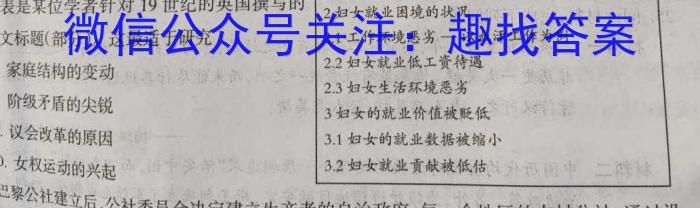 表是某位学者针对19世纪的英国撰写的
文标题(部分)。这最适于研究
家庭结构的变动
阶级矛盾的尖锐
议会改革的原因
女权运动的兴起
2妇女就业困境的状况
2.1工作环境恶劣
2.2妇女就业低工资待遇
2.3妇女生活环境恶劣
3妇女的就业价值被贬低
3.1妇女的就业数据被缩小
3.2妇女就业贡献被低估
微信公众号关注：趣找答案
材料二
巴黎公社建立后,公社委员会决定建立生产者的自治政府